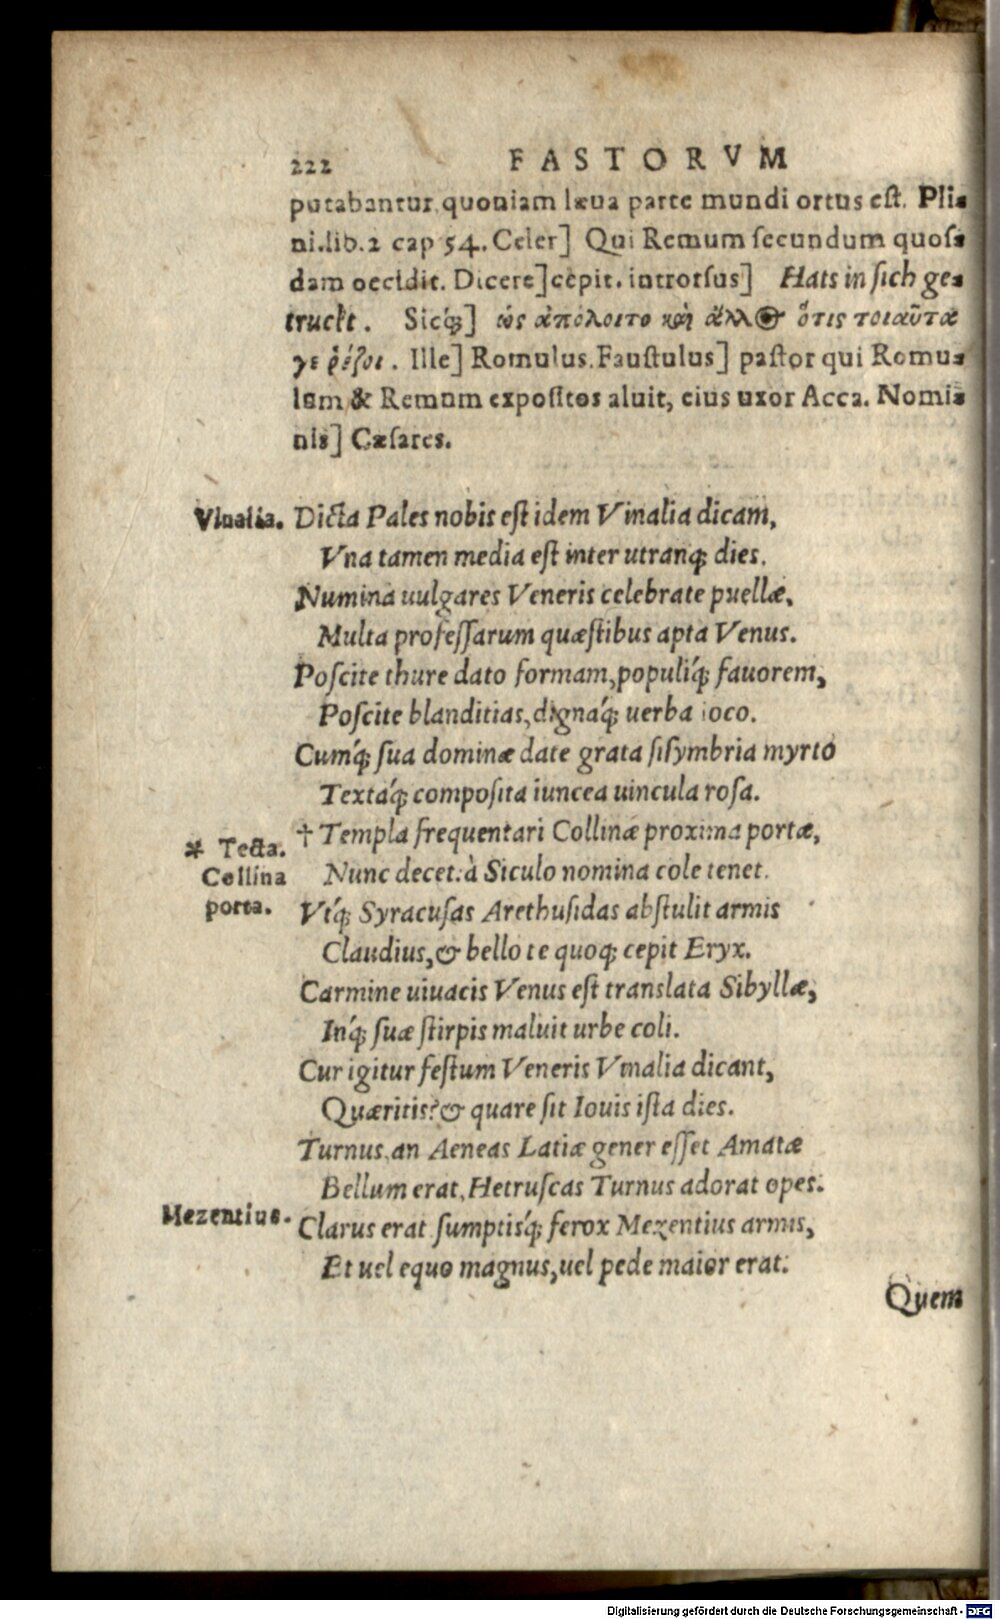 222 FASTORVM
putabantur, quoniam læua parte mundi ortus est. Pli-
ni.lib.2 cap 54. Celer] Qui Remum secundum quos-
dam occidit. Dicere] cępit. introrsus] Hats in sich ge-
truckt. Sicq́;] ὡς ἀπόλοιτο καὶ ἄλλος ὅτις τοιαῦτά
γε ῥέζοι. Ille] Romulus. Faustulus] pastor qui Romu-
lum & Remum expositos aluit, eius uxor Acca. Nomi-
nis] Cæsares.
Vinalia. Dicta Pales nobis est idem Vinalia dicam,
Vna tamen media est inter utranq; dies.
Numina uulgares Veneris celebrate puellæ,
Multa professarum quæstibus apta Venus.
Poscite thure dato formam, populiq́; fauorem,
Poscite blanditias, dignaq́; uerba ioco.
Cumq́; sua dominæ date grata sisymbria myrto
Textaq́; composita iuncea uincula rosa.
† Templa frequentari Collinæ proxima portæ,
* Tecta.
Nunc decet: à Siculo nomina cole tenet.
Collina
porta.
Vtq́; Syracusas Arethusidas abstulit armis
Claudius, & bello te quoq; cepit Eryx.
Carmine uiuacis Venus est translata Sibyllæ,
Inq́; suæ stirpis maluit urbe coli.
Cur igitur festum Veneris Vinalia dicant,
Quæritis? & quare sit Iouis ista dies.
Turnus, an Aeneas Latiæ gener esset Amatæ
Bellum erat, Hetruscas Turnus adorat opes.
Mezentius. Clarus erat sumptisq́; ferox Mezentius armis,
Et uel equo magnus, uel pede maior erat.
Quem
Digitalisierung gefördert durch die Deutsche Forschungsgemeinschaft - DFG